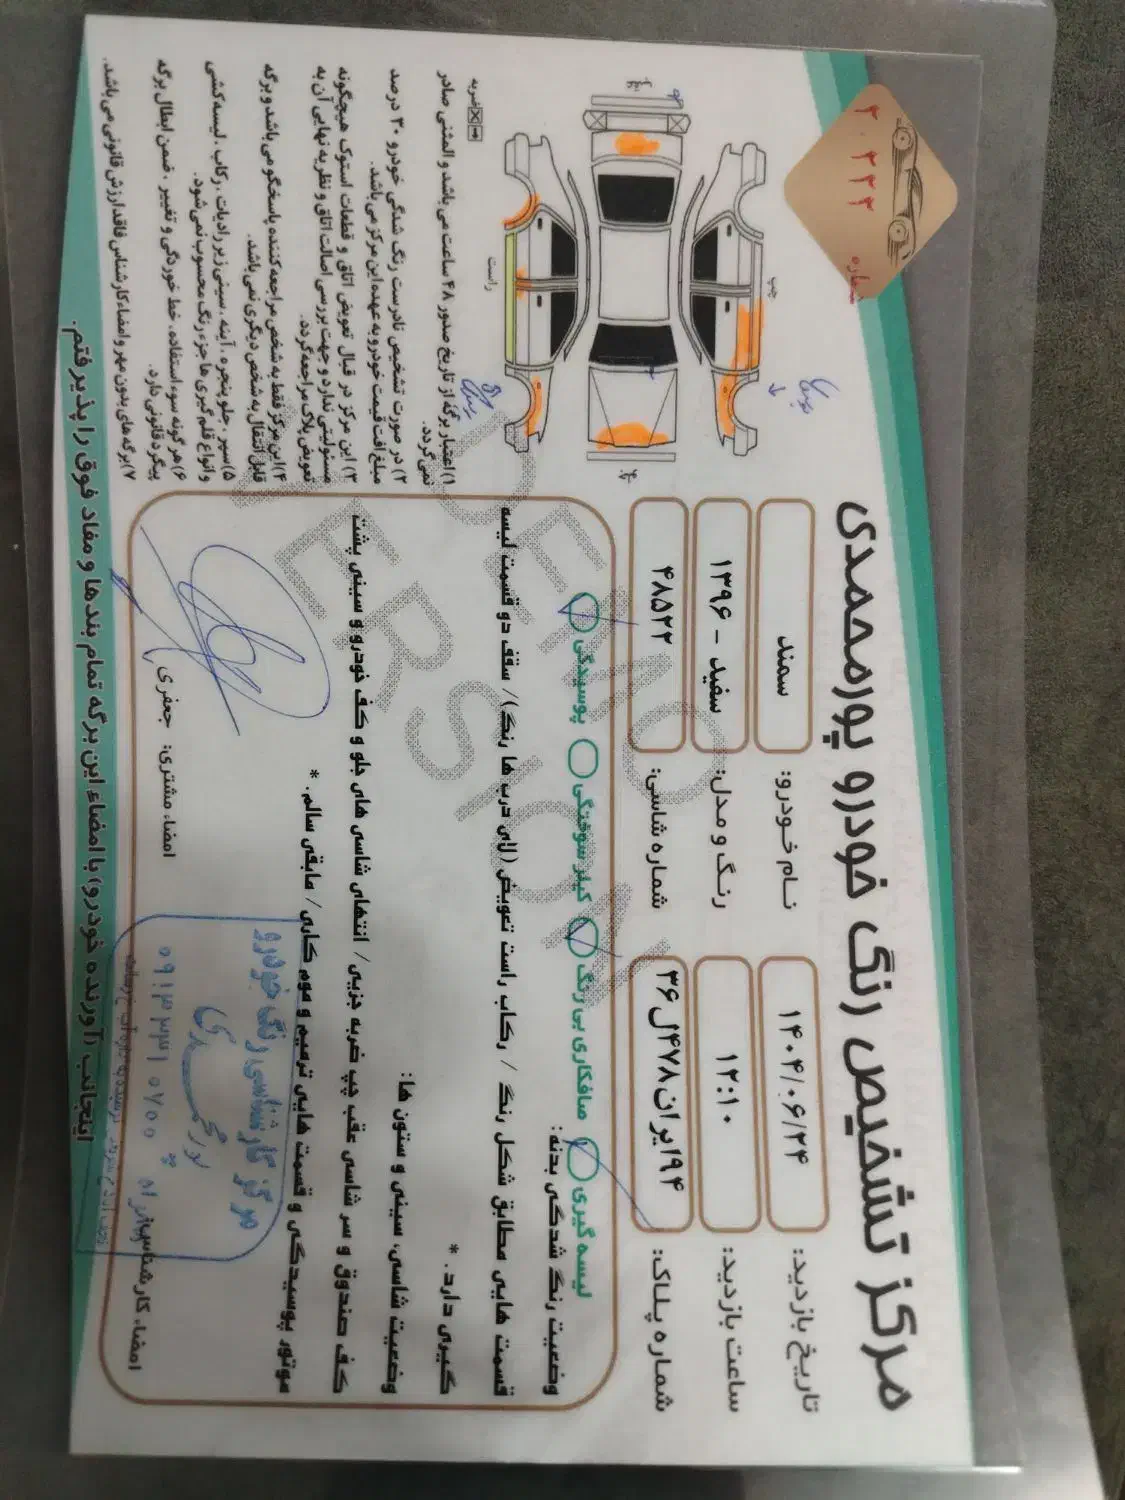 مرکز تشخیص رنگ خودرو پورمحمدی
شماره
۳۰۳۳۳
تاریخ بازدید: ۱۴۰۴/۰۶/۲۴
نام خودرو: سمند
ساعت بازدید: ۱۲:۱۰
رنگ و مدل: سفید - ۱۳۹۶
شماره پلاک: ۹۴ایران۴۷۸ل۳۶
شماره شاسی: ۴۸۵۲۲
لیسه گیری
صافکاری بی رنگ
کیلر سوختگی
پوسیدگی
وضعیت رنگ شدگی بدنه:
قسمت هایی مطابق شکل رنگ / رکاب راست تعویض (لای درب ها رنگ)/ سقف دو قسمت لیسه
گیری دارد. *
وضعیت شاسی، سینی و ستون ها:
کف صندوق و سر شاسی عقب چپ ضربه جزیی / انتهای شاسی های جلو و کف خودرو و سینی پشت
موتور پوسیدگی و قسمت هایی ترمیم و موم کاری / مابقی سالم. *
امضاء کارشناس
امضاء مشتری: جعفری
مرکز کارشناسی رنگ خودرو
چپ
راست
ضربه
۱)اعتبار برگه از تاریخ صدور ۴۸ ساعت می باشد و المثنی صادر
نمی گردد.
۲) در صورت تشخیص نادرست رنگ شدگی خودرو ۳۰ درصد
مبلغ افت قیمت خودرو به عهده این مرکز می باشد.
۳) این مرکز در قبال تعویض اتاق و قطعات استوک هیچگونه
مسئولیتی ندارد و جهت بررسی اصالت اتاق و نظریه نهایی آن به
تعویض پلاک مراجعه گردد.
۴)این مرکز فقط به شخص مراجعه کننده پاسخگو می باشد و برگه
قابل انتقال به شخص دیگری نمی باشد.
۵)سپر ، جلو پنجره ، آینه ، سینی زیر رادیات ، رکاب ، لیسه کشی
و انواع قلم گیری ها جزء رنگ محسوب نمی شود.
۶)هر گونه سوء استفاده، خط خوردگی و تغییر ، ضمن ابطال برگه
پیگرد قانونی دارد.
۷)برگه های بدون مهر و امضاء کارشناس فاقد ارزش قانونی می باشد.
اینجانب (آورنده خودرو) با امضاء این برگه تمام بندها و مفاد فوق را پذیرفتم.
DEMO
VERSION